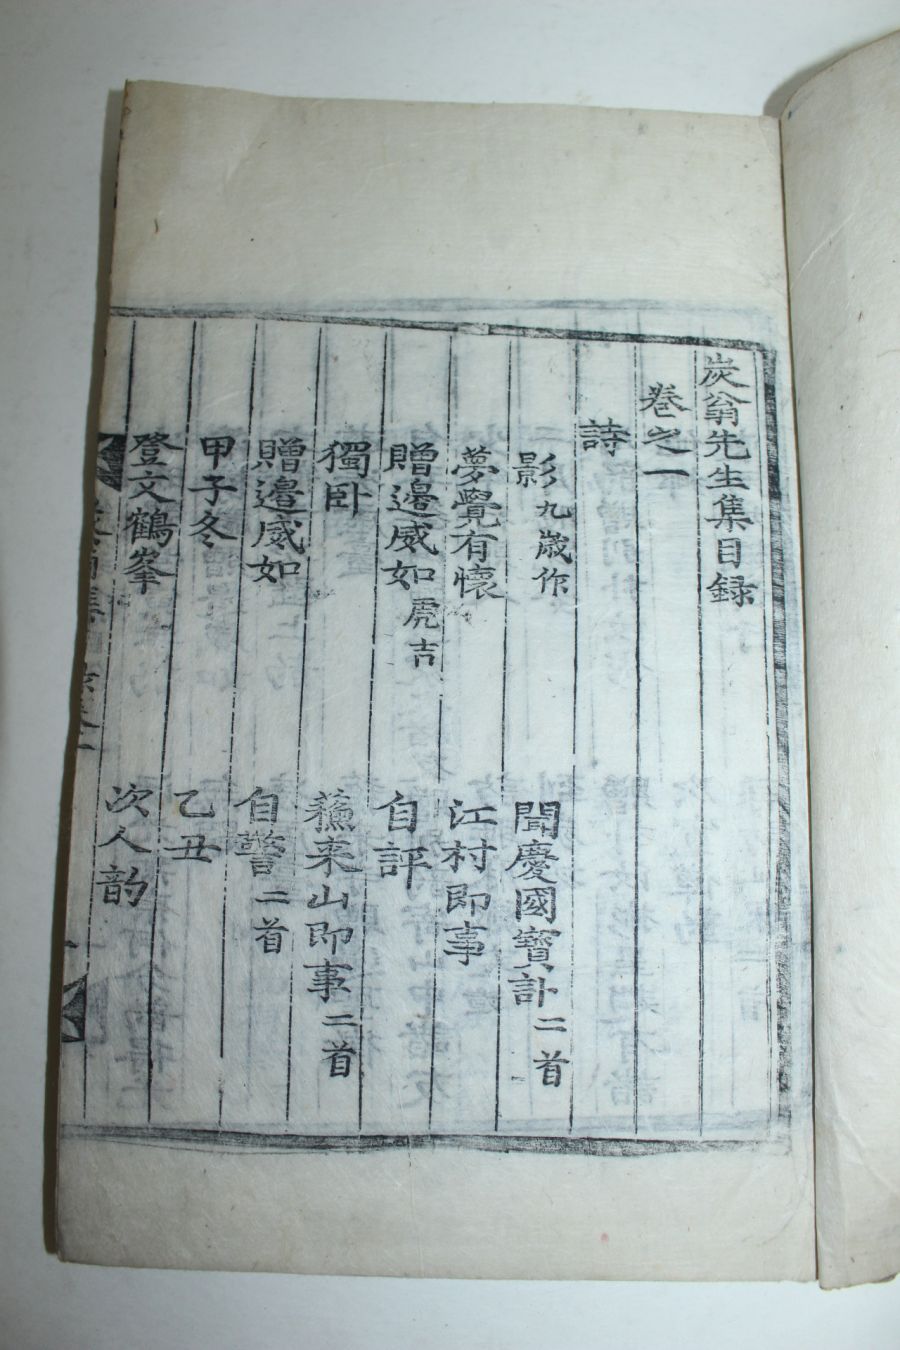 炭翁先生集目録
卷之一
詩
影 九歲作 聞慶國寶訃 二首
夢覺有懷 江村即事
贈邉威如 虎吉 自評
獨卧 蘓来山即事 二首
贈邉威如 自警 二首
甲子冬 乙丑
登文鶴峯 次人韵